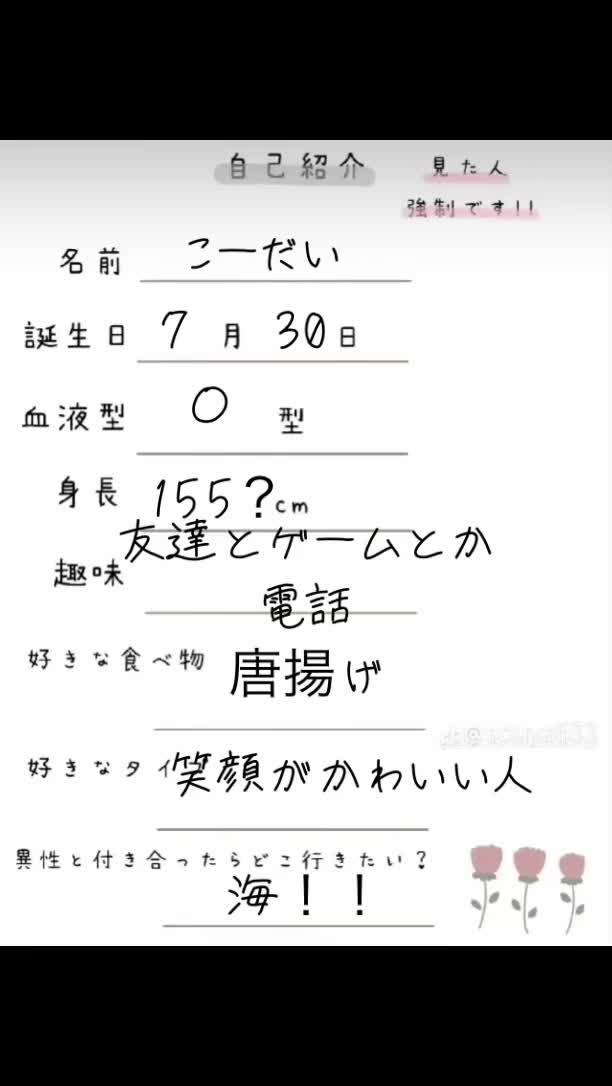 自己紹介
見た人
強制です!!
名前 こーだい
誕生日 7月 30日
血液型 O 型
身長 155?cm
趣味 友達とゲームとか
電話
好きな食べ物 唐揚げ
好きなタイ 笑顔がかわいい人
異性と付き合ったらどこ行きたい?
海!!